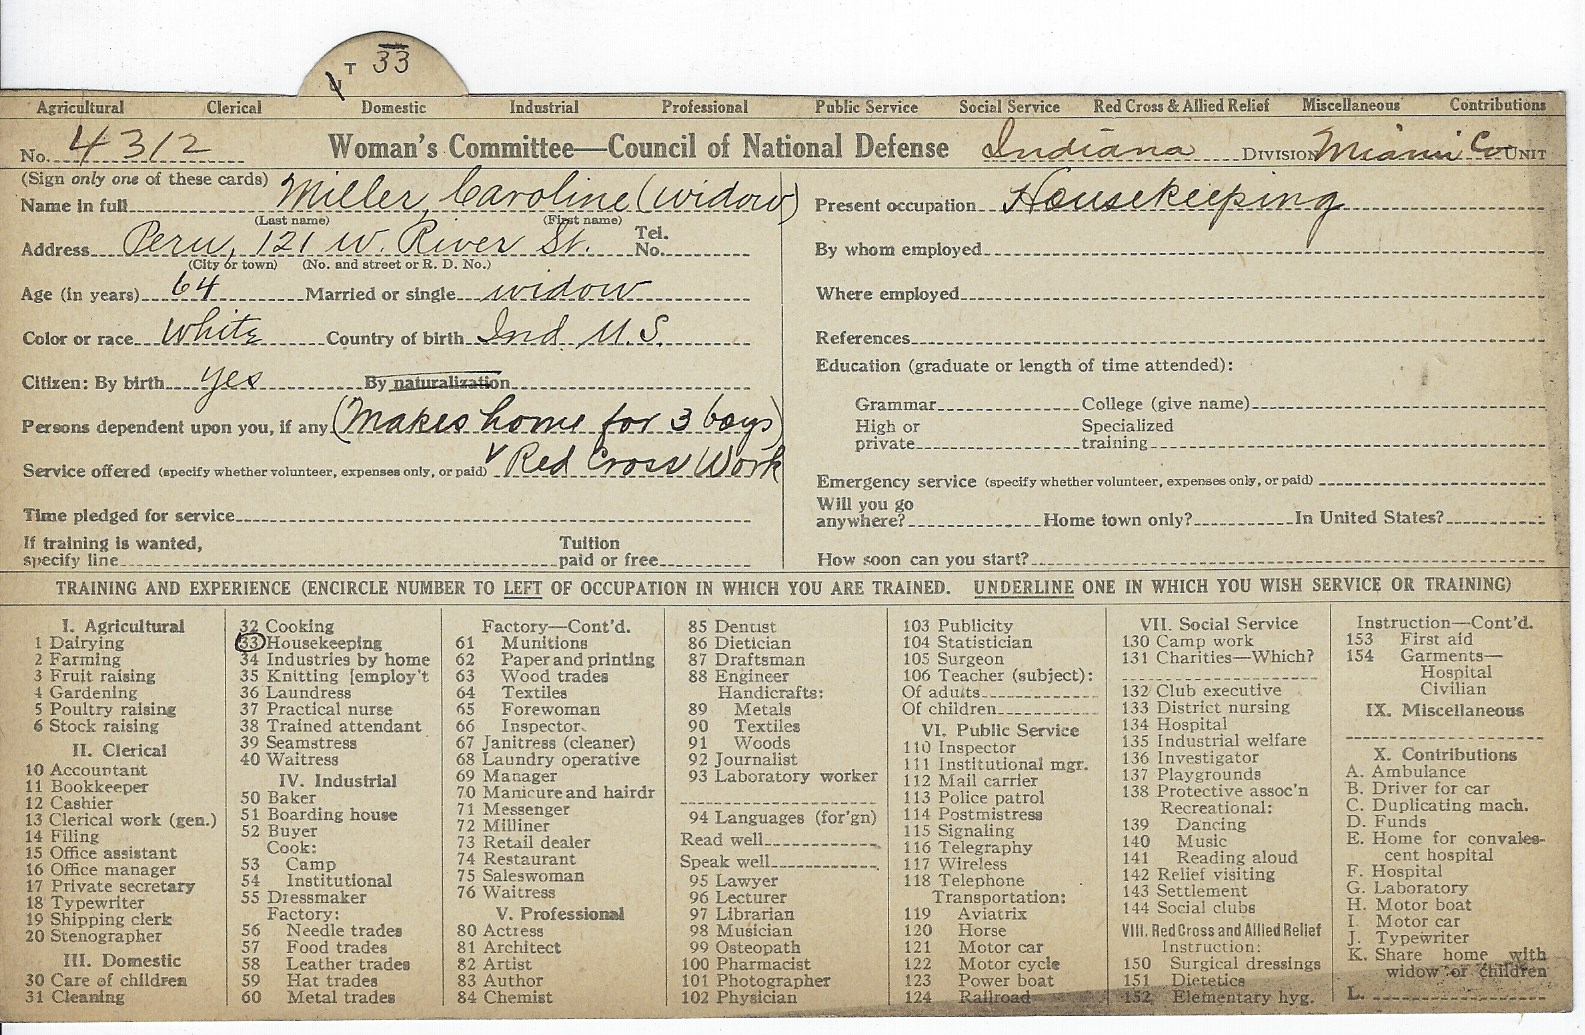 U T 33
Agricultural Clerical Domestic Industrial Professional Public Service Social Service Red Cross & Allied Relief Miscellaneous Contributions
No. 4312 Woman's Committee—Council of National Defense Indiana DIVISION Miami Co. UNIT
(Sign only one of these cards)
Name in full Miller, Caroline (widow)
(Last name) (First name)
Address Peru, 121 W. River St. Tel. No.
(City or town) (No. and street or R. D. No.)
Age (in years) 64 Married or single widow
Color or race White Country of birth Ind. U.S.
Citizen: By birth yes By naturalization
Persons dependent upon you, if any (Makes home for 3 boys)
Service offered (specify whether volunteer, expenses only, or paid) Red Cross Work
Time pledged for service
If training is wanted, specify line Tuition paid or free
Present occupation Housekeeping
By whom employed
Where employed
References
Education (graduate or length of time attended):
Grammar College (give name)
High or private Specialized training
Emergency service (specify whether volunteer, expenses only, or paid)
Will you go anywhere? Home town only? In United States?
How soon can you start?
TRAINING AND EXPERIENCE (ENCIRCLE NUMBER TO LEFT OF OCCUPATION IN WHICH YOU ARE TRAINED. UNDERLINE ONE IN WHICH YOU WISH SERVICE OR TRAINING)
I. Agricultural
1 Dairying
2 Farming
3 Fruit raising
4 Gardening
5 Poultry raising
6 Stock raising
II. Clerical
10 Accountant
11 Bookkeeper
12 Cashier
13 Clerical work (gen.)
14 Filing
15 Office assistant
16 Office manager
17 Private secretary
18 Typewriter
19 Shipping clerk
20 Stenographer
III. Domestic
30 Care of children
31 Cleaning
32 Cooking
33 Housekeeping
34 Industries by home
35 Knitting [employ't
36 Laundress
37 Practical nurse
38 Trained attendant
39 Seamstress
40 Waitress
IV. Industrial
50 Baker
51 Boarding house
52 Buyer
Cook:
53 Camp
54 Institutional
55 Dressmaker
Factory:
56 Needle trades
57 Food trades
58 Leather trades
59 Hat trades
60 Metal trades
Factory—Cont'd.
61 Munitions
62 Paper and printing
63 Wood trades
64 Textiles
65 Forewoman
66 Inspector
67 Janitress (cleaner)
68 Laundry operative
69 Manager
70 Manicure and hairdr
71 Messenger
72 Milliner
73 Retail dealer
74 Restaurant
75 Saleswoman
76 Waitress
V. Professional
80 Actress
81 Architect
82 Artist
83 Author
84 Chemist
85 Dentist
86 Dietician
87 Draftsman
88 Engineer
Handicrafts:
89 Metals
90 Textiles
91 Woods
92 Journalist
93 Laboratory worker
94 Languages (for'gn)
Read well
Speak well
95 Lawyer
96 Lecturer
97 Librarian
98 Musician
99 Osteopath
100 Pharmacist
101 Photographer
102 Physician
103 Publicity
104 Statistician
105 Surgeon
106 Teacher (subject):
Of adults
Of children
VI. Public Service
110 Inspector
111 Institutional mgr.
112 Mail carrier
113 Police patrol
114 Postmistress
115 Signaling
116 Telegraphy
117 Wireless
118 Telephone
Transportation:
119 Aviatrix
120 Horse
121 Motor car
122 Motor cycle
123 Power boat
124 Railroad
VII. Social Service
130 Camp work
131 Charities—Which?
132 Club executive
133 District nursing
134 Hospital
135 Industrial welfare
136 Investigator
137 Playgrounds
138 Protective assoc'n
Recreational:
139 Dancing
140 Music
141 Reading aloud
142 Relief visiting
143 Settlement
144 Social clubs
VIII. Red Cross and Allied Relief
Instruction:
150 Surgical dressings
151 Dietetics
152 Elementary hyg.
Instruction—Cont'd.
153 First aid
154 Garments—
Hospital
Civilian
IX. Miscellaneous
X. Contributions
A. Ambulance
B. Driver for car
C. Duplicating mach.
D. Funds
E. Home for convales-
cent hospital
F. Hospital
G. Laboratory
H. Motor boat
I. Motor car
J. Typewriter
K. Share home with
widow or children
L.